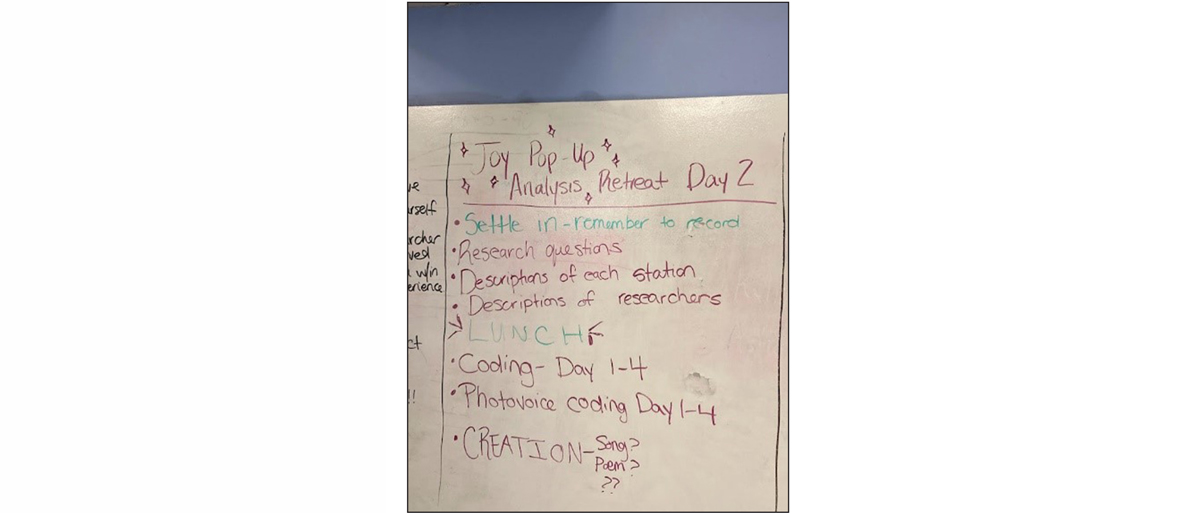 Joy Pop-Up
Analysis Retreat Day 2
• Settle in - remember to record
• Research questions
• Descriptions of each station
• Descriptions of researchers
LUNCH
• Coding - Day 1-4
• Photovoice coding Day 1-4
• CREATION - Song?
Poem?
??
rself
rcher
w/in
erience
ct
!!